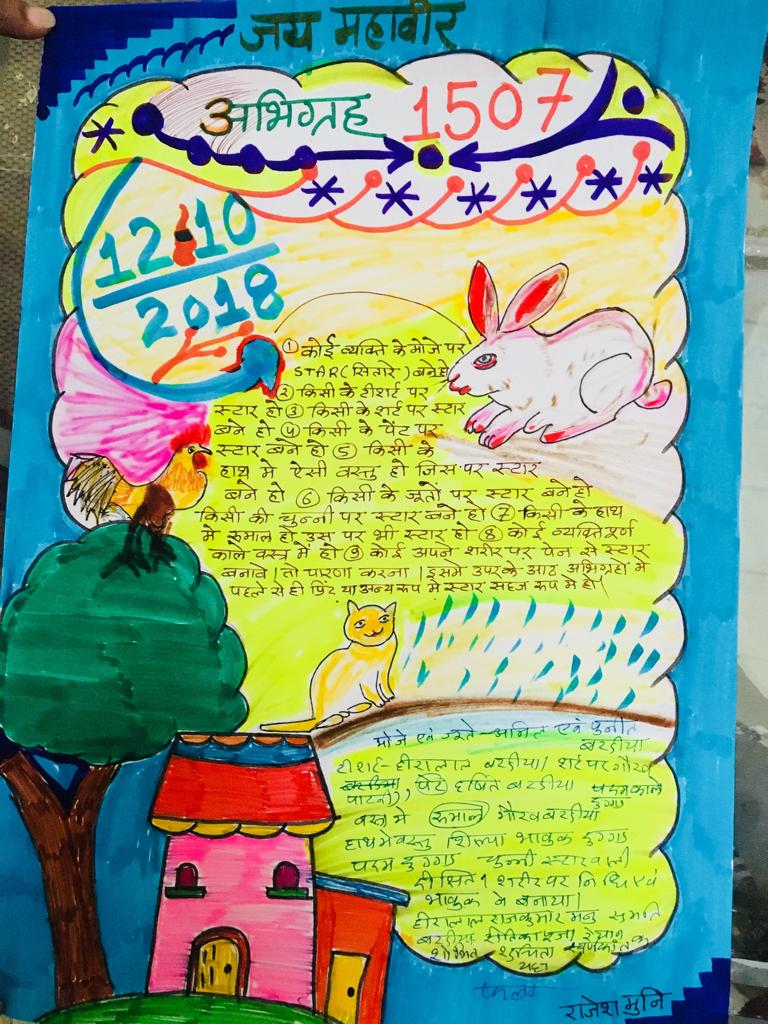 जय महावीर
अभिग्रह 1507
12.10
2018
① कोई व्यक्ति के मोजे पर
STAR (सितारे) बने हो
② किसी के टीशर्ट पर
स्टार हो ③ किसी के शर्ट पर स्टार
बने हो ④ किसी के पेंट पर
स्टार बने हो ⑤ किसी के
हाथ मे ऐसी वस्तु हो जिस पर स्टार
बने हो ⑥ किसी के जूतो पर स्टार बने हो
किसी की चुन्नी पर स्टार बने हो ⑦ किसी के हाथ
मे रुमाल हो उस पर भी स्टार हो ⑧ कोई व्यक्ति पूर्ण
काले वस्त्र में हो ⑨ कोई अपने शरीर पर पेन से स्टार
बनावे। तो पारणा करना। इसमे उपर के आठ अभिग्रहो मे
पहले से ही प्रिंट या अन्य रूप मे स्टार सहज रूप मे हो।
मोजे एवं जूते - अनिल एवं पुनीत
बरडीया
टीशर्ट - हीरालाल बरडीया। शर्ट पर गौरव
पाटनी, पेंट हर्षित बरडीया
काले
वस्त्र मे रुमाल गौरव बरडीया
हाथ मे वस्तु शिल्पा भावुक डुग्गड
डुग्गड चुन्नी स्टार वाली
शरीर पर निधि एवं
भावुक ने बनाया।
हीरालाल राजकुमार
बरडीया
राजेश मुनि